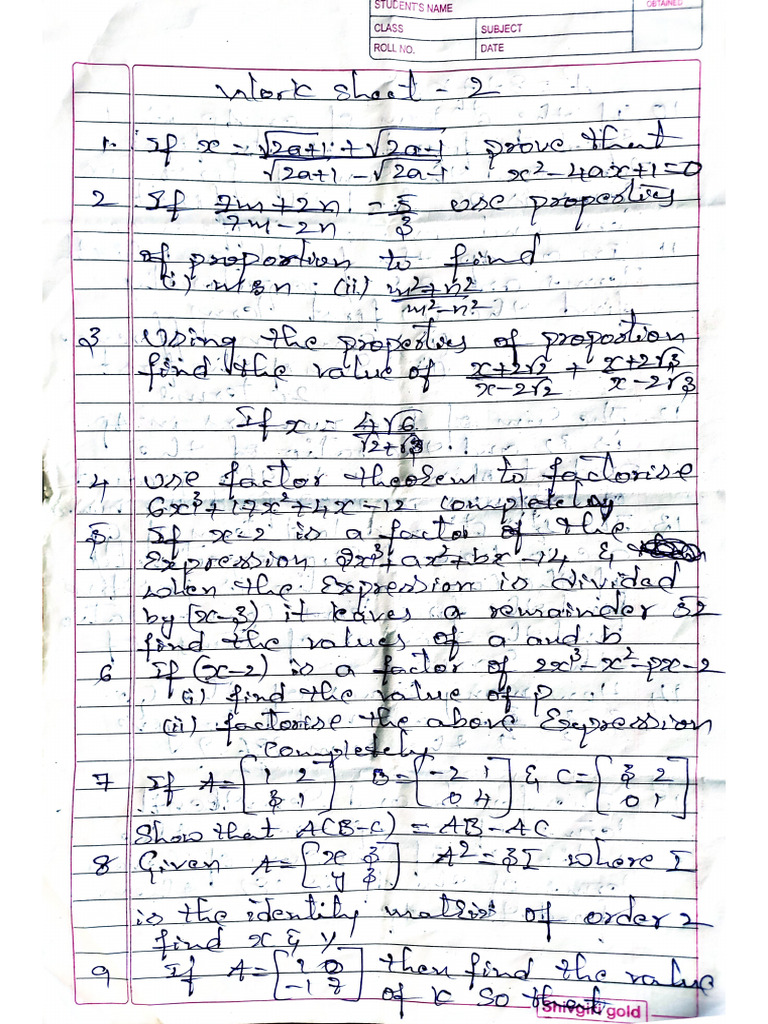 STUDENT'S NAME
OBTAINED
CLASS
SUBJECT
ROLL NO.
DATE
Work Sheet - 2
1. If x = √2a+1 + √2a-1 / √2a+1 - √2a-1 . prove that x² - 4ax + 1 = 0
2 If 7m + 2n / 7m - 2n = 5/3 use properties
of proportion to find
(i) m : n . (ii) m² + n² / m² - n²
3 Using the properties of proportion
find the value of x+2√2 / x-2√2 + x+2√3 / x-2√3
If x = 4√6 / √2+√3
4 use factor theorem to factorise
6x³ + 17x² + 4x - 12 completely
5 If x-2 is a factor of the
Expression 2x³ + ax² + bx - 14 &
when the Expression is divided
by (x-3) it leaves a remainder 52
find the values of a and b
6 If (x-2) is a factor of 2x³ - x² - px - 2
(i) find the value of p
(ii) factorise the above Expression
completely
7 If A = [1 2 / 3 1] B = [-2 1 / 0 4] & C = [3 2 / 0 1]
Show that A(B-C) = AB - AC
8 Given A = [x 3 / y 3] A² = 3I where I
is the identity matrix of order 2
find x & y
9 If A = [1 0 / -1 7] then find the value
of k so that
Shivgiri gold